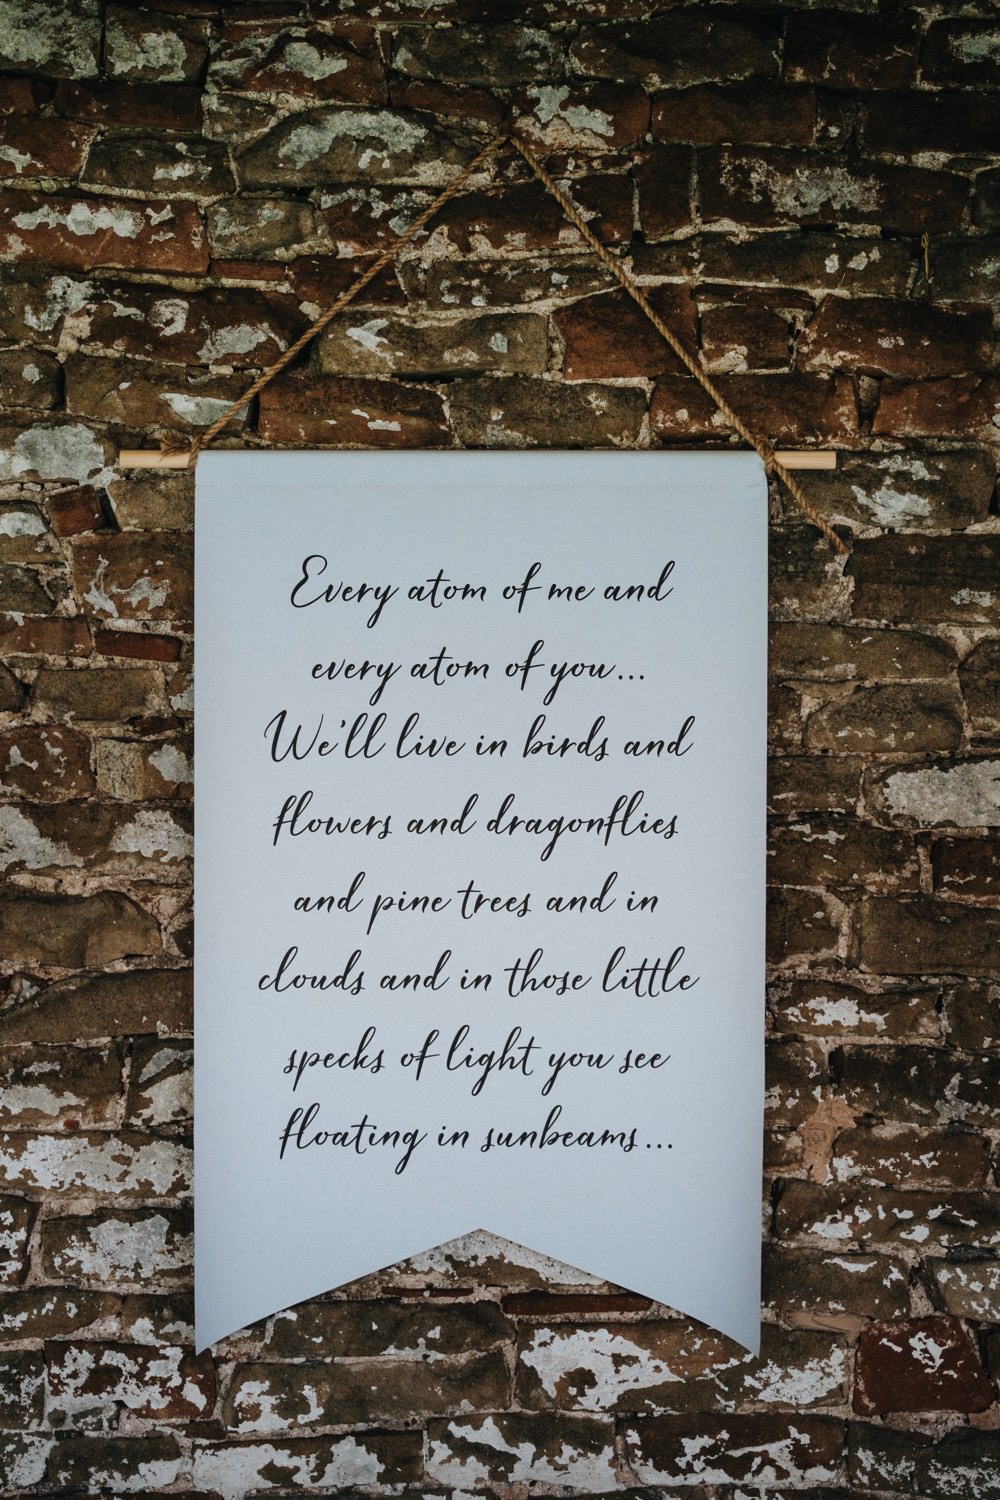 Every atom of me and
every atom of you...
We'll live in birds and
flowers and dragonflies
and pine trees and in
clouds and in those little
specks of light you see
floating in sunbeams...